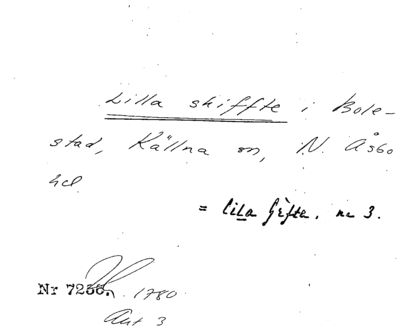 Lilla skiffte i Bole-
stad, Källna sn, N. Åsbo
hd
= lila Gefte. nr 3.
Nr 7256. 1780
Akt 3